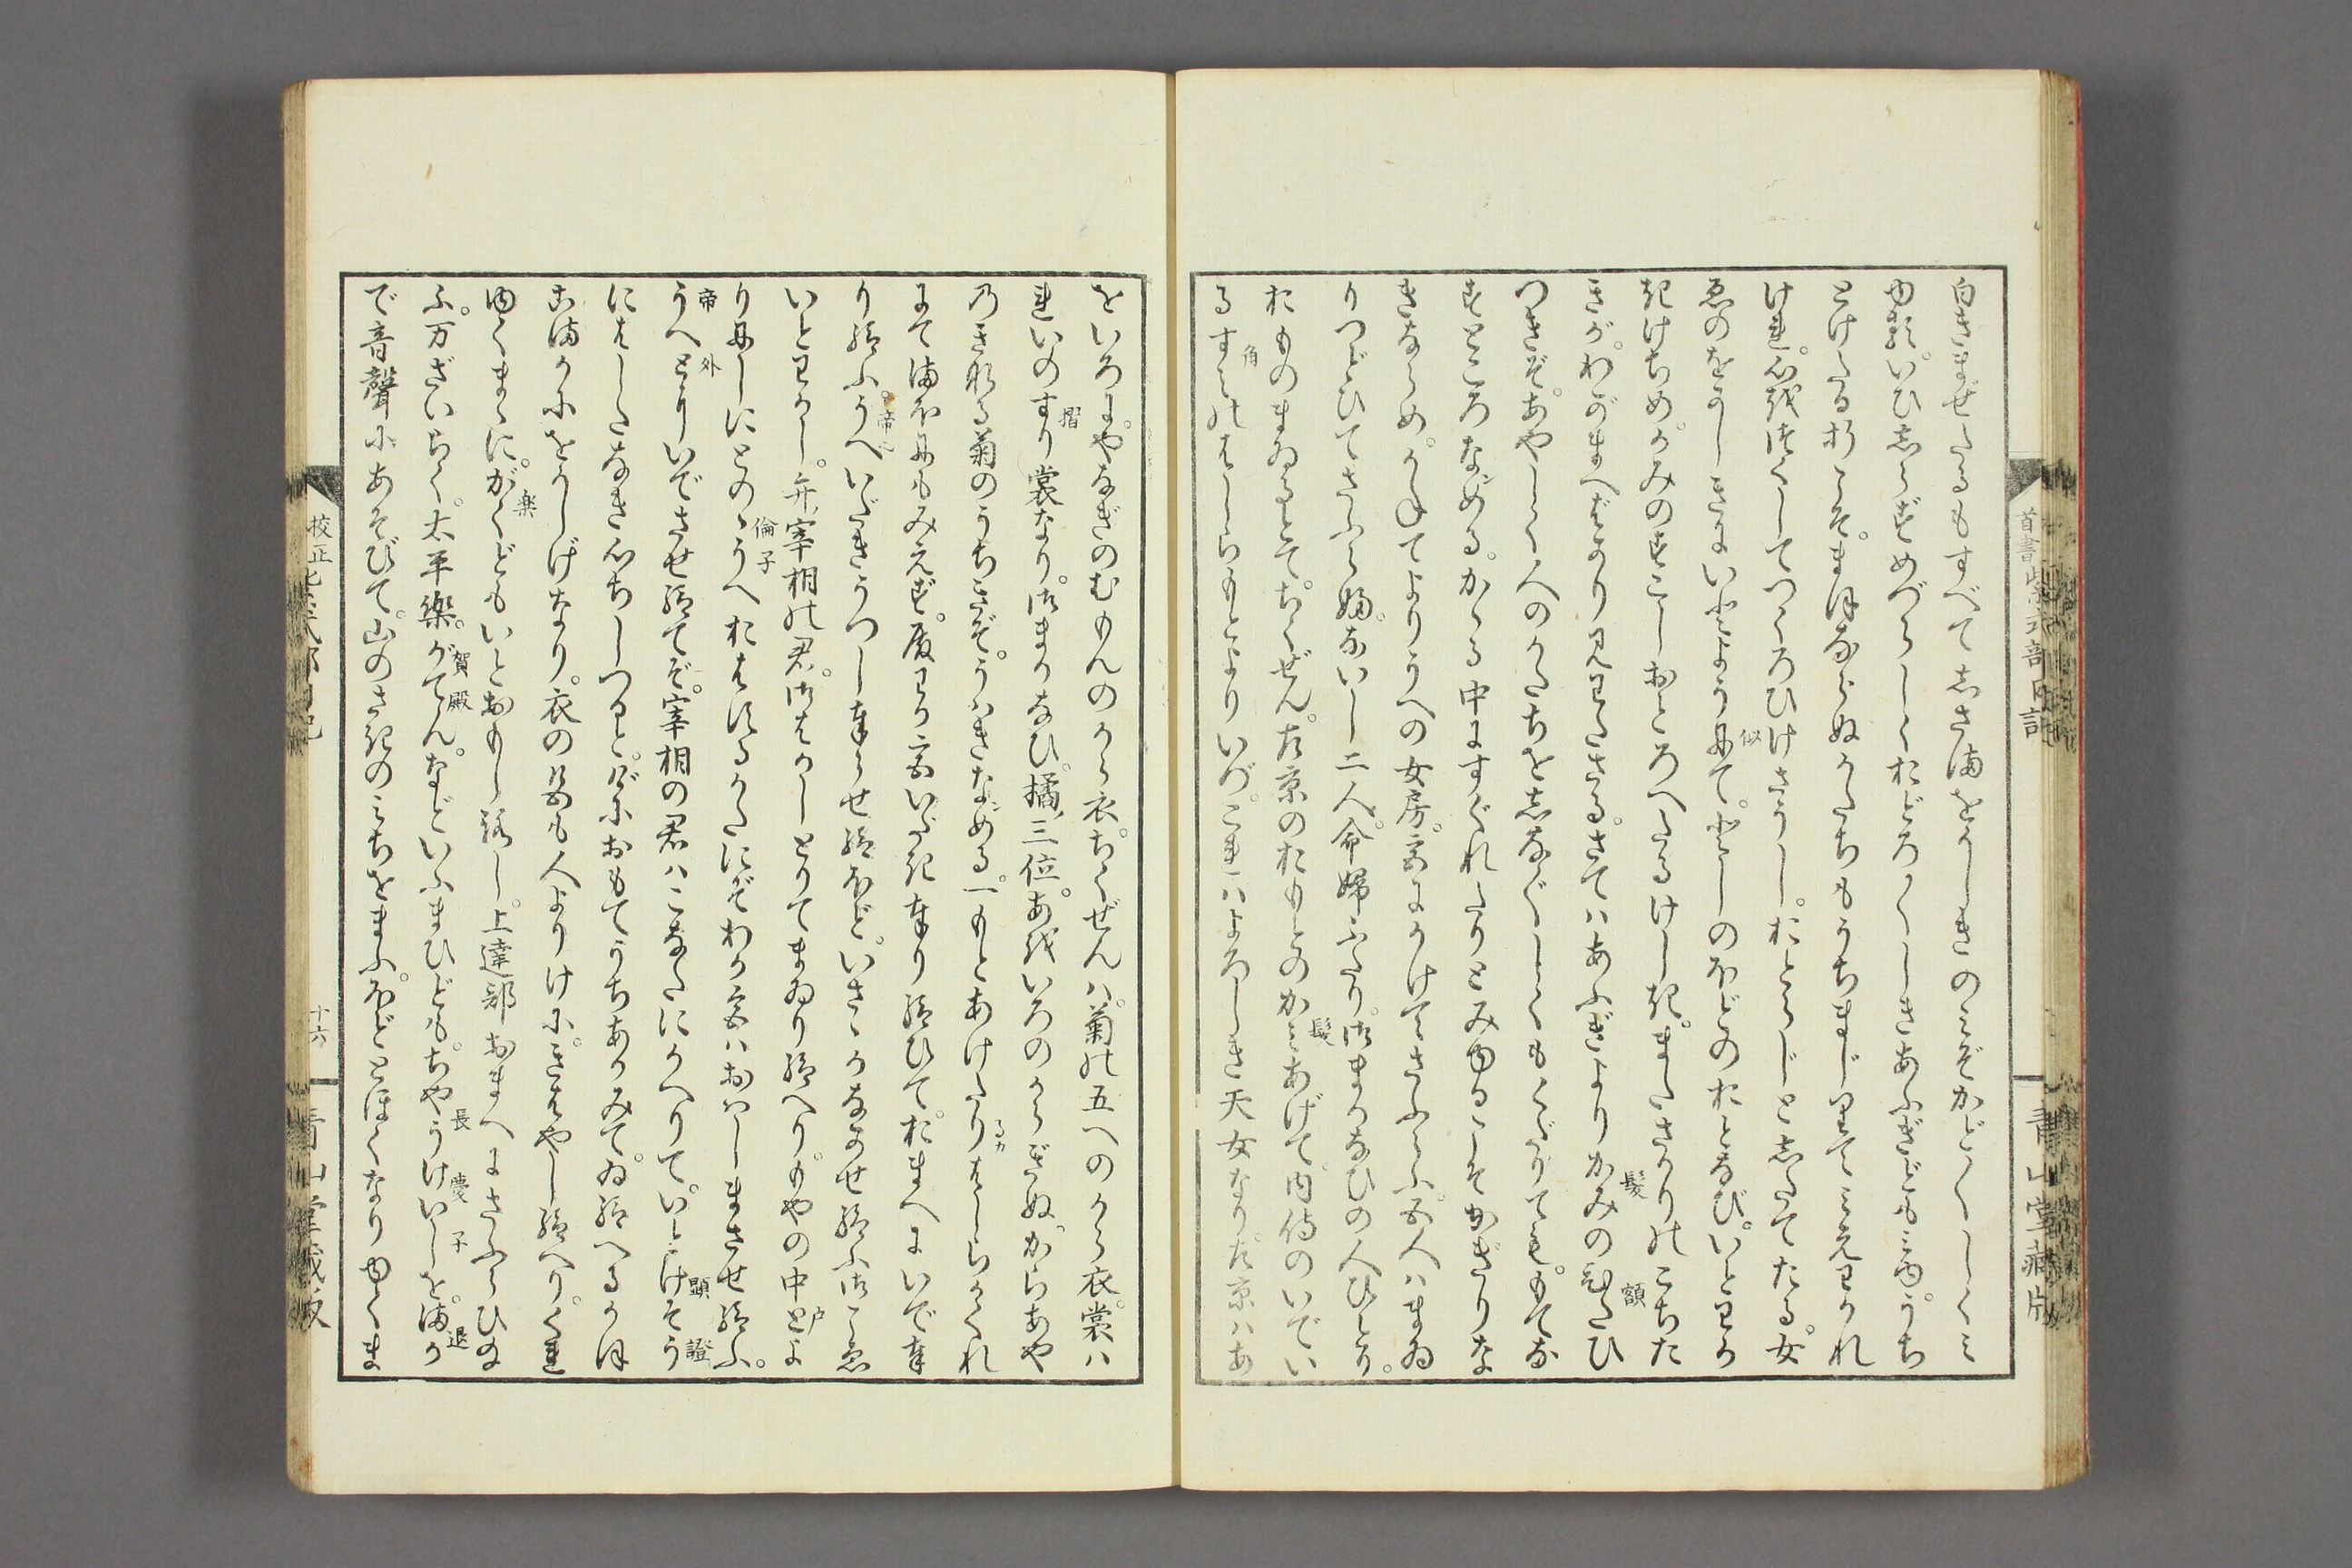 白きまぜたるもすべてしさまをかしきのみぞかど〳〵しくみ
ゆるいひしらずめづらしくおどろ〳〵しきあふぎどもみゆうち
とけたる折こそまほならぬかたちもうちまじりてみえわかれ
けれ心を〳〵してつくろひけさうしおとらじとしたてたる女
ゑのをかしきにいとよう似てとしのほどのおとなびいとわか
きけぢめかみのすこしおとろへたるけしきまださかりのこちた
きがわがまへばかり見わたさるさてはあふぎよりかみのひたひ
つきぞあやしく人のかたちをしな〴〵しくもくだりてももてな
すところなめるかゝる中にすぐれたりとみゆるこそかぎりな
きならめかねてよりうへの女房宮にかけてさふらふ五人はまゐ
りつどひてさふらふ内侍二人命婦ふたり御まかなひの人ひとり
おものまゐるとてちくぜん左京のおもとのかみあげて内侍のいでい
るすみのはしらもとよりいづこれはよろしき天女なり左京はあ
似
髪
額
髪
角
首書紫式部日記
青山堂藏版
をいろにやなぎのむもんのから衣ちくぜんは菊の五への から衣裳は
れいのすり裳なり御まかなひ橘三位あをいろのからぎぬからあや
のきなる菊のうちきぞうはきなめる一もとあけたりはしらがくれ
にてまほにもみえず殿わか宮いだき奉り給ひておまへにいで奉
り給ふうへいだきうつし奉らせ給ほどいさゝかなかせ給ふ御こゑ
いとわかし弁宰相の君御はかしとりてまゐり給へりもやの中とよ
り西にとのゝうへおはするかたにぞわか宮はおはしまさせ給ふ
うへとにいでさせ給てぞ宰相の君はこなたにかへりていとけそう
にはしたなき心ちしつるとげにおもてうちあかみてゐ給へるかほ
こまかにをかしげなり衣の色も人よりけにきはやし給へりくれ
ゆくまゝにがくどもいとおもしろし上達部おまへにさふらひ給
ふ万ざいらく太平樂がてんなどいふまひどもちやうけいしをまか
で音聲にあそびて山のさきのみちをまふほどとほくなりゆくま
摺
帝
るカ
戸
倫子
帝
外
顯
證
楽
賀殿
長
慶
子
退
校正紫式部日記
十六
青山堂藏版